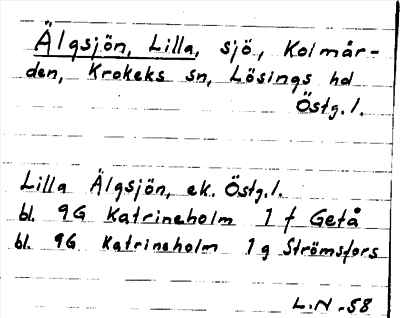 Älgsjön, Lilla, sjö, Kolmår-
den, Krokeks sn, Lösings hd
Östg.l.
Lilla Älgsjön, ek. Östg.l.
bl. 9G Katrineholm 1 f Getå
bl. 9G Katrineholm 1 g Strömsfors
L.N-58